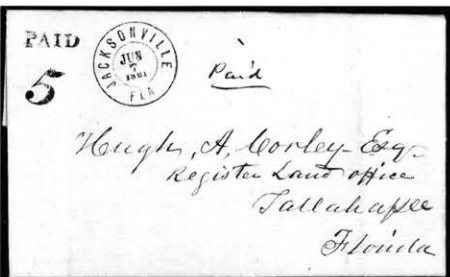 PAID
5
JACKSONVILLE
JUN
7
1861
FLA
Paid
Hugh, A, Corley- Esq-
Register Land office
Tallahassee
Florida